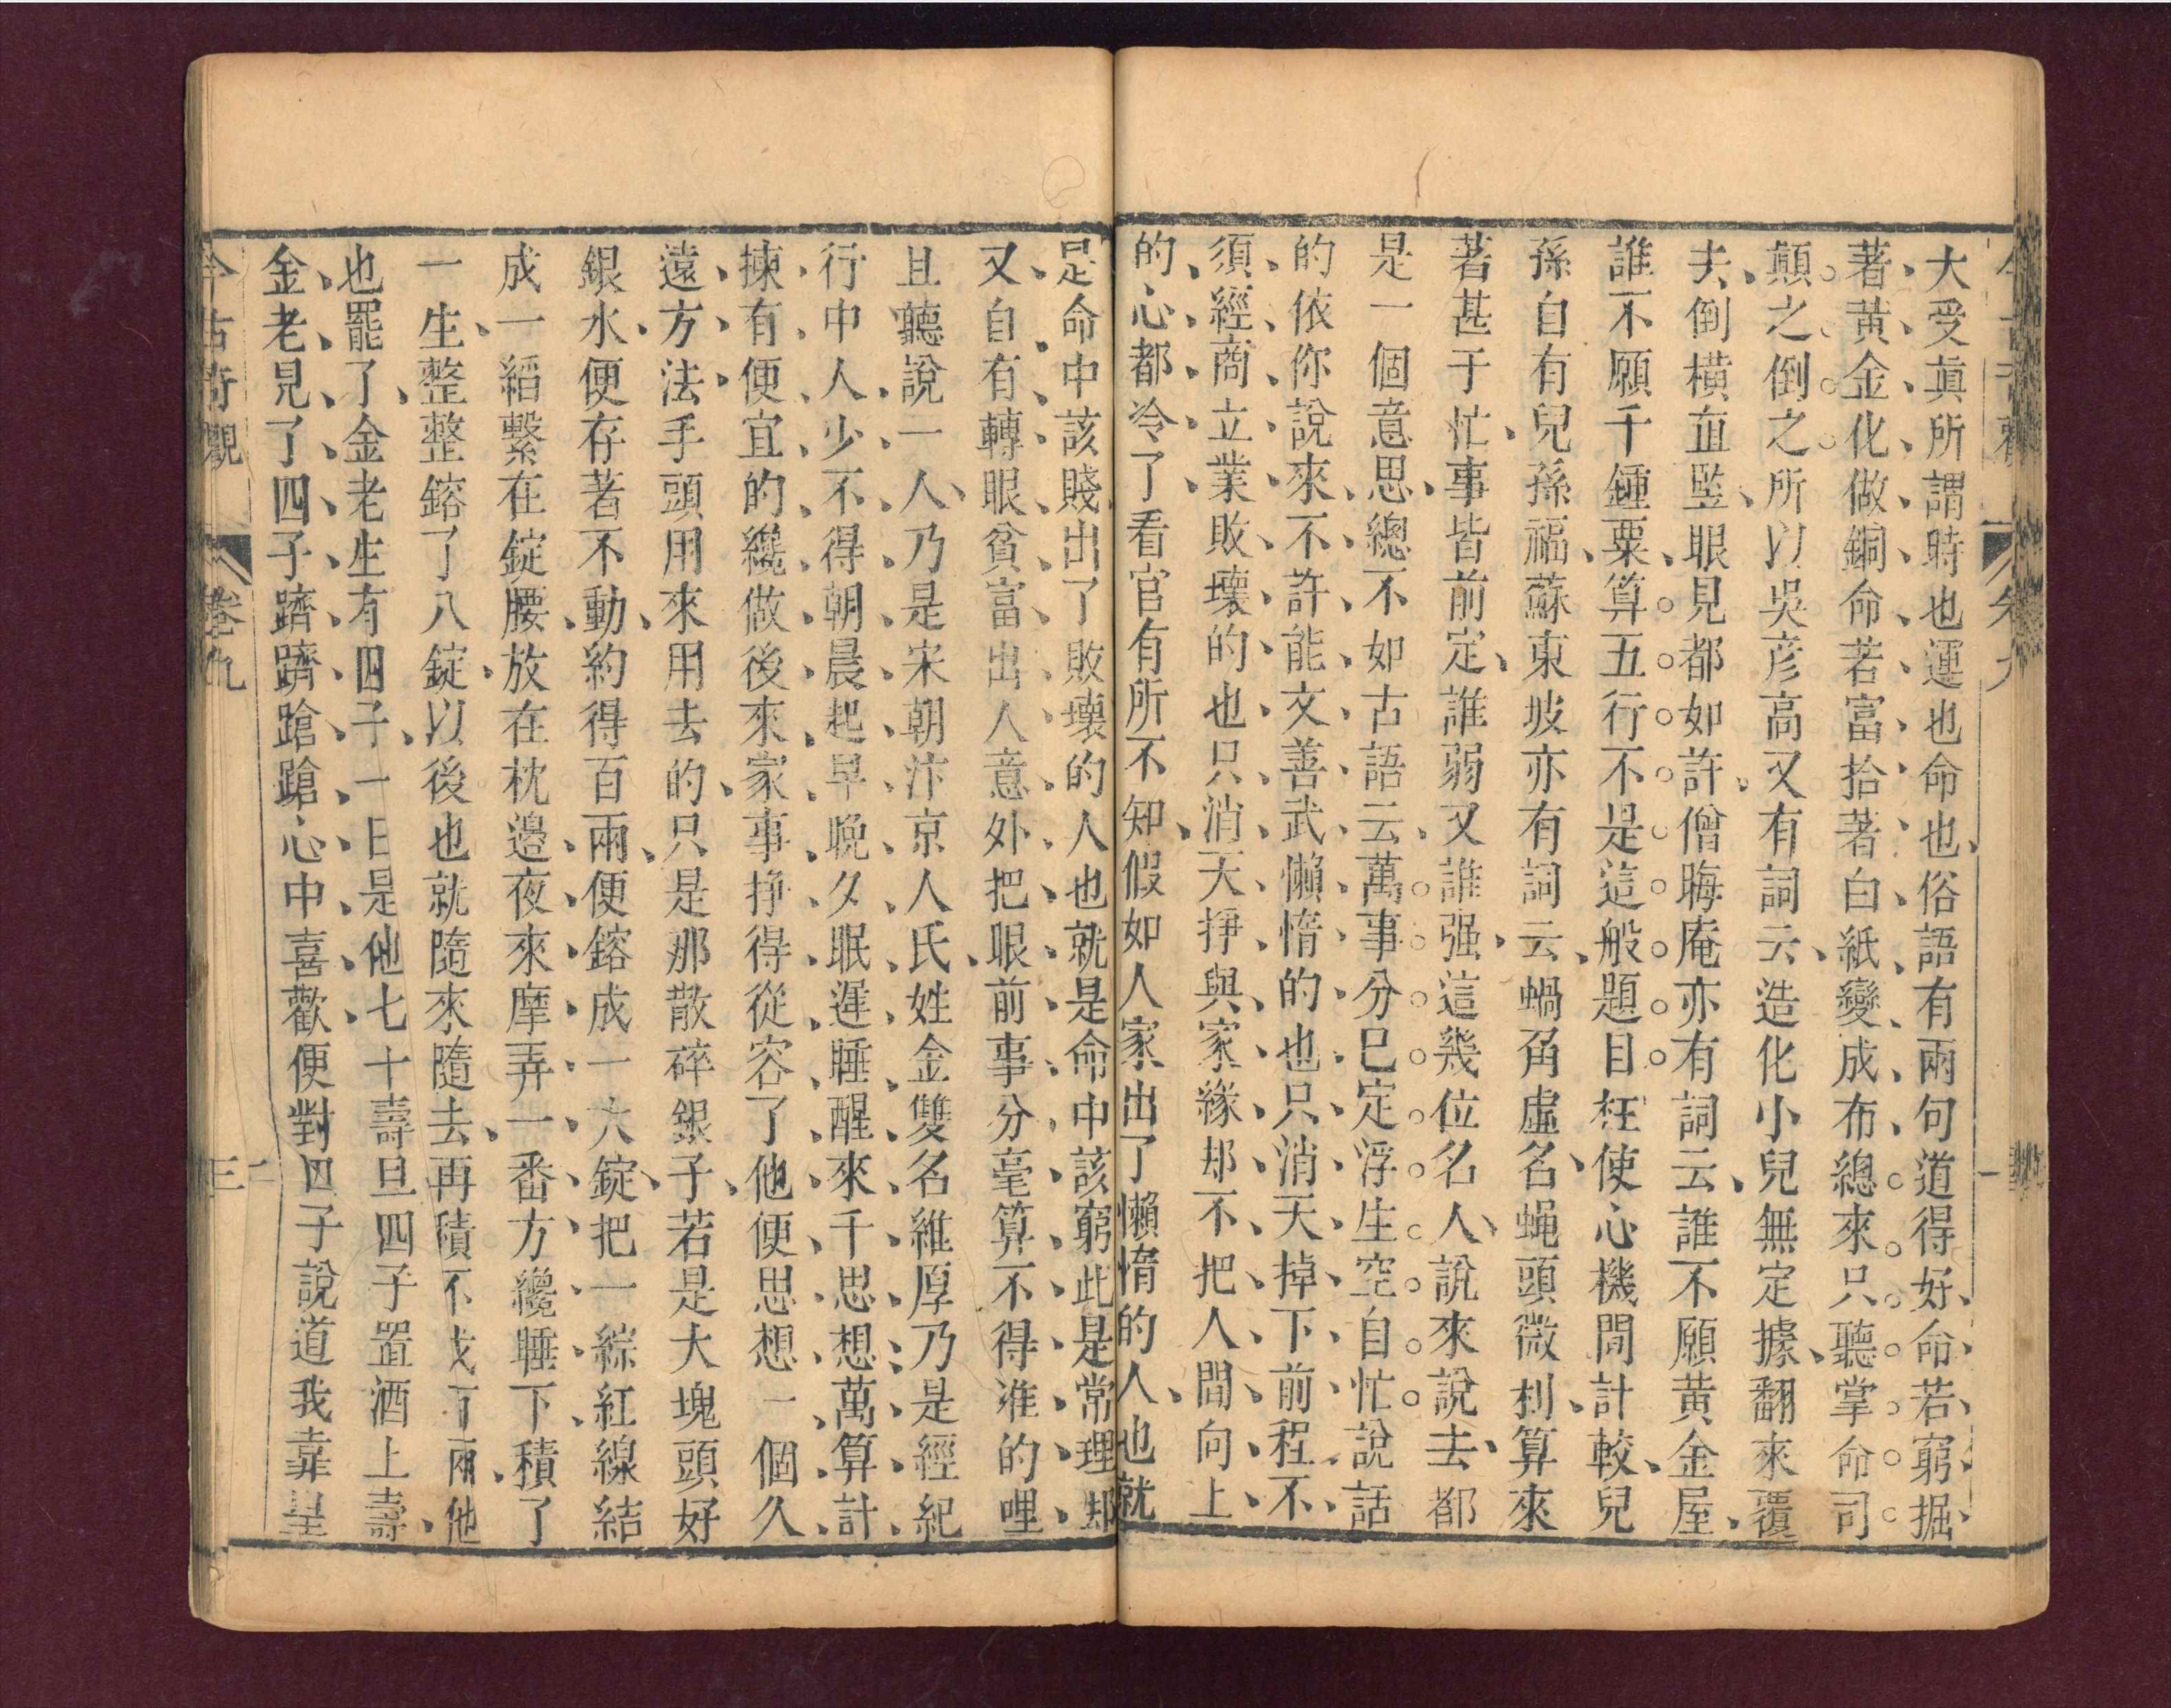 大受眞所謂時也運也命也俗語有兩句道得好命若窮掘
著黃金化做銅命若富拾著白紙變成布總來只聽掌命司
顛之倒之所以吳彦高又有詞云造化小兒無定據翻來覆
去倒橫直竪眼見都如許僧晦庵亦有詞云誰不願黄金屋
誰不願千鍾粟算五行不是這般題目枉使心機閒計較兒
孫自有兒孫福蘇東坡亦有詞云蝸角虛名蝇頭微利算來
著甚于忙事皆前定誰弱又誰强這幾位名人說來說去都
是一個意思總不如古語云萬事分已定浮生空自忙說話
的依你說來不許能文善武懶惰的也只消天掉下前程不
須經商立業敗壞的也只消天挣與家緣却不把人間向上
的心都冷了看官有所不知假如人家出了懶惰的人也就
是命中該賤出了敗壞的人也就是命中該窮此是常理却
又自有轉眼貧富出人意外把眼前事分毫算不得准的哩
且聽說一人乃是宋朝汴京人氏姓金雙名維厚乃是經紀
行中人少不得朝晨起早晚夕眠遲睡醒來千思想萬算計
揀有便宜的纔做後來家事挣得從容了他便思想一個久
遠方法手頭用來用去的只是那散碎銀子若是大塊頭好
銀水便存著不動約得百兩便鎔成一大錠把一綜紅線結
成一縚繫在錠腰放在枕邉夜來摩弄一番方纔睡下積了
一生整整鎔了八錠以後也就隨來隨去再積不成百兩他
也罷了金老生有四子一日是他七十壽旦四子置酒上壽
金老見了四子躋躋蹌蹌心中喜歡便對四子說道我靠皇
今古奇觀 卷九 三